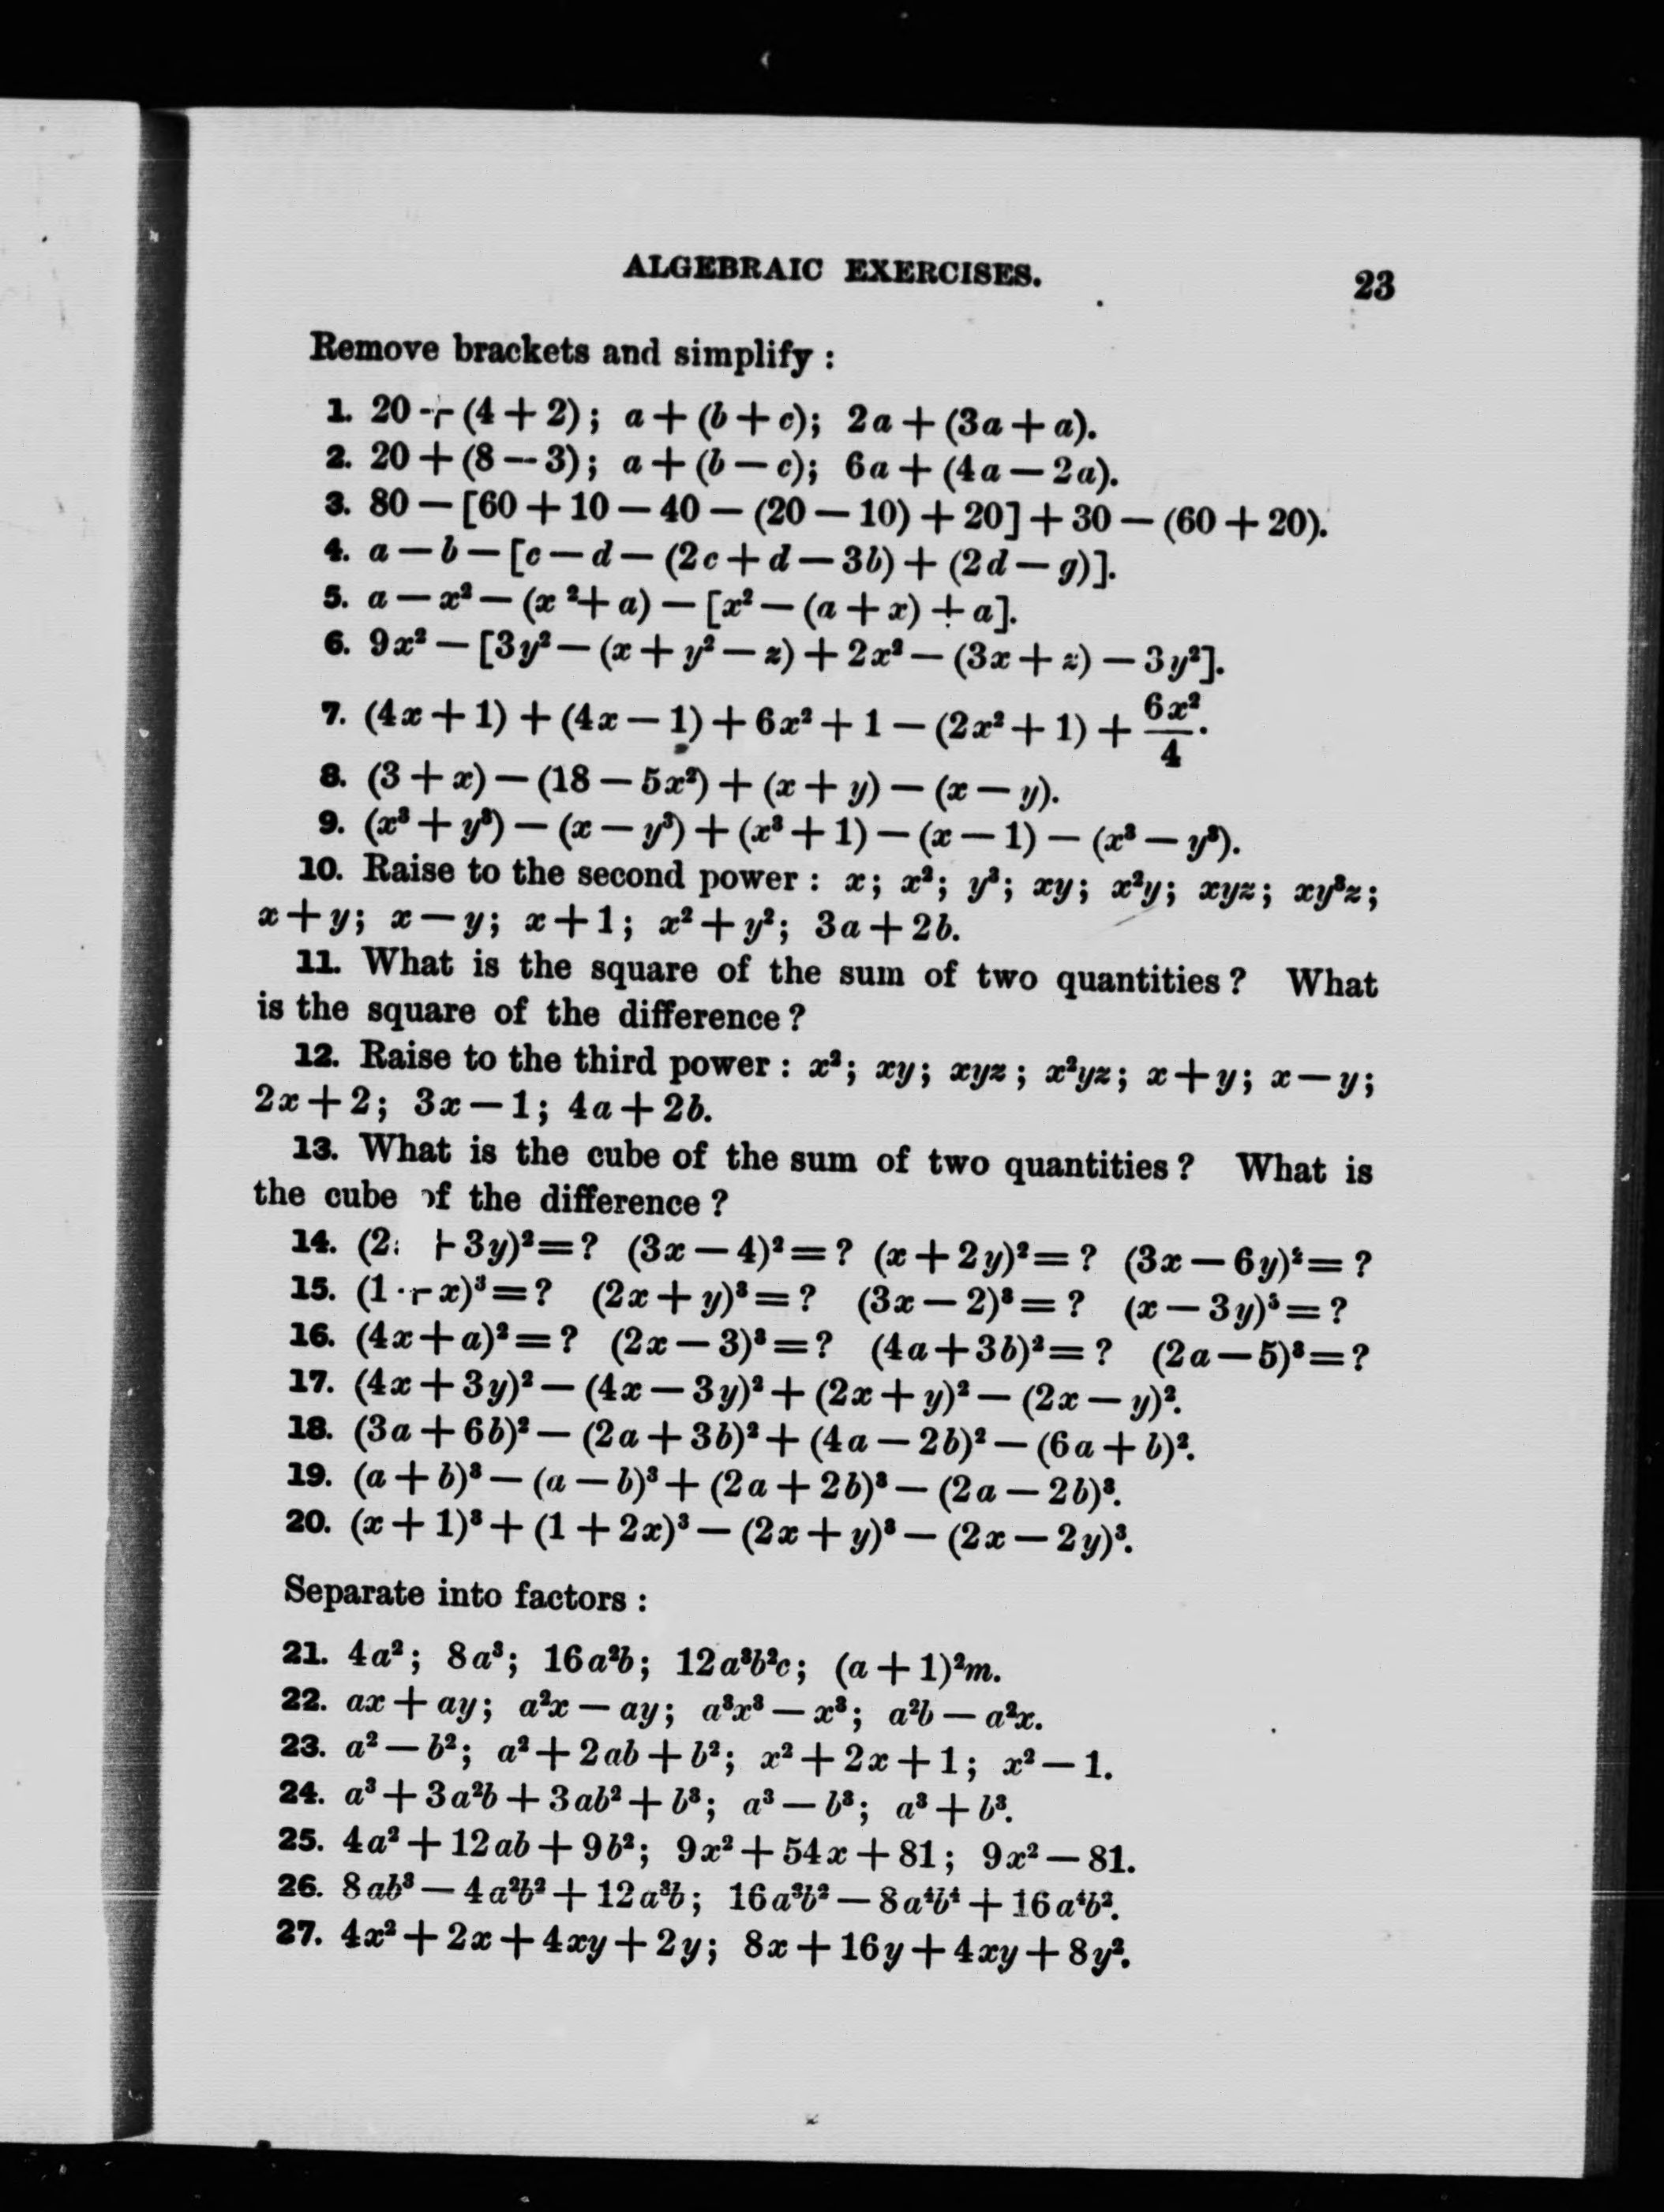 ALGEBRAIC EXERCISES. 23
Remove brackets and simplify :
1. 20 + (4 + 2); a + (b + c); 2a + (3a + a).
2. 20 + (8 — 3); a + (b — c); 6a + (4a — 2a).
3. 80 — [60 + 10 — 40 — (20 — 10) + 20] + 30 — (60 + 20).
4. a — b — [c — d — (2c + d — 3b) + (2d — g)].
5. a — x² — (x² + a) — [x² — (a + x) + a].
6. 9x² — [3y² — (x + y² — z) + 2x² — (3x + z) — 3y²].
7. (4x + 1) + (4x — 1) + 6x² + 1 — (2x² + 1) + 6x²/4.
8. (3 + x) — (18 — 5x²) + (x + y) — (x — y).
9. (x³ + y³) — (x — y³) + (x³ + 1) — (x — 1) — (x³ — y³).
10. Raise to the second power : x; x²; y³; xy; x²y; xyz; xy³z;
x + y; x — y; x + 1; x² + y²; 3a + 2b.
11. What is the square of the sum of two quantities? What
is the square of the difference?
12. Raise to the third power : x²; xy; xyz; x²yz; x + y; x — y;
2x + 2; 3x — 1; 4a + 2b.
13. What is the cube of the sum of two quantities? What is
the cube of the difference?
14. (2 + 3y)² = ? (3x — 4)² = ? (x + 2y)² = ? (3x — 6y)² = ?
15. (1 + x)³ = ? (2x + y)³ = ? (3x — 2)³ = ? (x — 3y)³ = ?
16. (4x + a)² = ? (2x — 3)³ = ? (4a + 3b)² = ? (2a — 5)³ = ?
17. (4x + 3y)² — (4x — 3y)² + (2x + y)² — (2x — y)².
18. (3a + 6b)² — (2a + 3b)² + (4a — 2b)² — (6a + b)².
19. (a + b)³ — (a — b)³ + (2a + 2b)³ — (2a — 2b)³.
20. (x + 1)³ + (1 + 2x)³ — (2x + y)³ — (2x — 2y)³.
Separate into factors :
21. 4a²; 8a³; 16a²b; 12a³b²c; (a + 1)²m.
22. ax + ay; a²x — ay; a³x³ — x³; a²b — a²x.
23. a² — b²; a² + 2ab + b²; x² + 2x + 1; x² — 1.
24. a³ + 3a²b + 3ab² + b³; a³ — b³; a³ + b³.
25. 4a² + 12ab + 9b²; 9x² + 54x + 81; 9x² — 81.
26. 8ab³ — 4a²b² + 12a³b; 16a³b² — 8a⁴b⁴ + 16a⁴b².
27. 4x² + 2x + 4xy + 2y; 8x + 16y + 4xy + 8y².